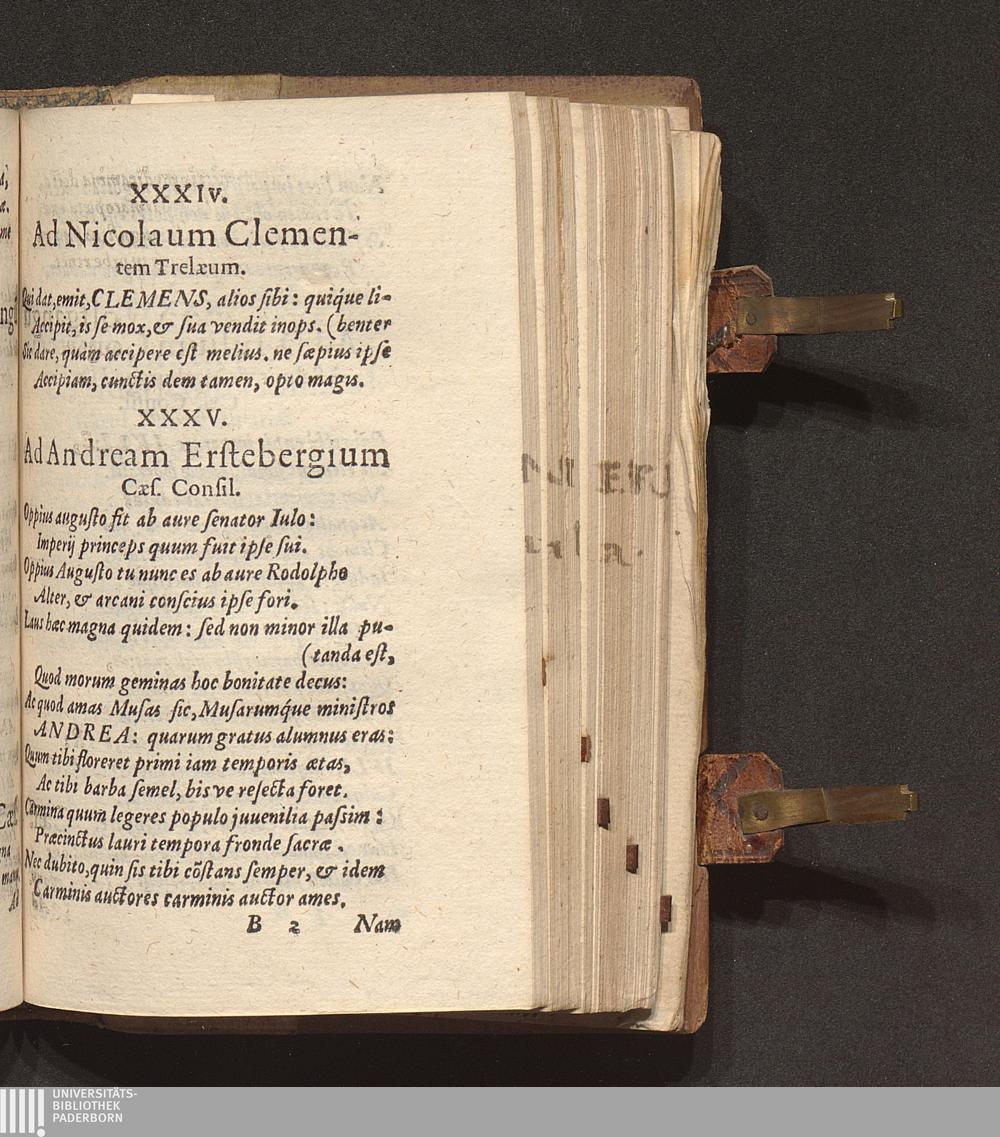 XXXIV.
Ad Nicolaum Clemen-
tem Trelæum.
Qui dat, emit, CLEMENS, alios sibi: quiq́ue li-
Accipit, is se mox, & sua vendit inops. (benter
Sic dare, quàm accipere est melius. ne sæpius ipse
Accipiam, cunctis dem tamen, opto magis.
XXXV.
Ad Andream Erstebergium
Cæs. Consil.
Oppius augusto fit ab aure senator Iulo:
Imperij princeps quum fuit ipse sui.
Oppius Augusto tu nunc es ab aure Rodolpho
Alter, & arcani conscius ipse fori.
Laus hæc magna quidem: sed non minor illa pu-
(tanda est,
Quod morum geminas hoc bonitate decus:
Ac quod amas Musas sic, Musarumq́ue ministros
ANDREA: quarum gratus alumnus eras:
Quum tibi floreret primi iam temporis ætas,
Ac tibi barba semel, bis ve resecta foret.
Carmina quum legeres populo juuenilia passim:
Præcinctus lauri tempora fronde sacræ.
Nec dubito, quin sis tibi cõstans semper, & idem
Carminis auctores carminis auctor ames.
B 2 Nam
UNIVERSITÄTS-
BIBLIOTHEK
PADERBORN